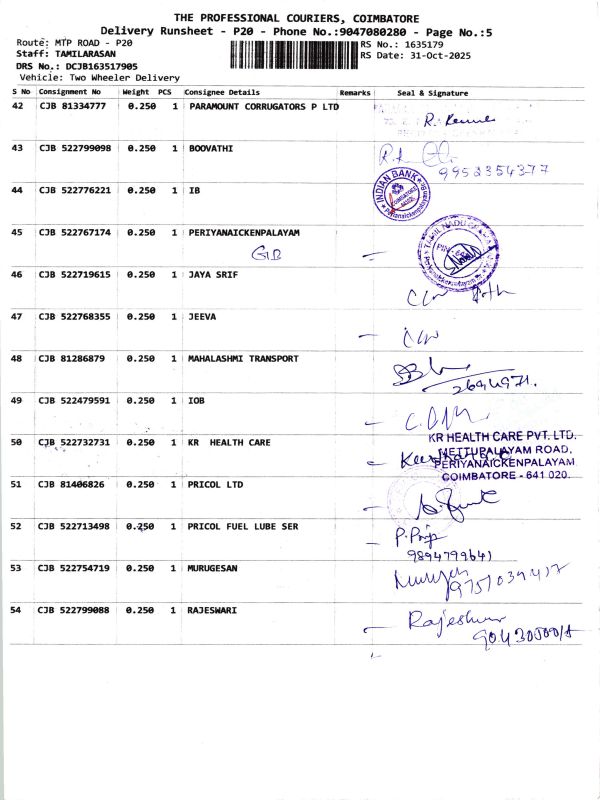 THE PROFESSIONAL COURIERS, COIMBATORE
Delivery Runsheet - P20 - Phone No.:9047080280 - Page No.:5
Route: MTP ROAD - P20
RS No.: 1635179
Staff: TAMILARASAN
RS Date: 31-Oct-2025
DRS No.: DCJB163517905
Vehicle: Two Wheeler Delivery
S No Consignment No Weight PCS Consignee Details Remarks Seal & Signature
42 CJB 81334777 0.250 1 PARAMOUNT CORRUGATORS P LTD
43 CJB 522799098 0.250 1 BOOVATHI
9952354377
44 CJB 522776221 0.250 1 IB
INDIAN BANK
45 CJB 522767174 0.250 1 PERIYANAICKENPALAYAM
46 CJB 522719615 0.250 1 JAYA SRIF
47 CJB 522768355 0.250 1 JEEVA
48 CJB 81286879 0.250 1 MAHALASHMI TRANSPORT
2694971.
49 CJB 522479591 0.250 1 IOB
50 CJB 522732731 0.250 1 KR HEALTH CARE
KR HEALTH CARE PVT. LTD.
METTUPALAYAM ROAD,
PERIYANAICKENPALAYAM
COIMBATORE - 641 020.
51 CJB 81406826 0.250 1 PRICOL LTD
52 CJB 522713498 0.250 1 PRICOL FUEL LUBE SER
9894799641
53 CJB 522754719 0.250 1 MURUGESAN
54 CJB 522799088 0.250 1 RAJESWARI